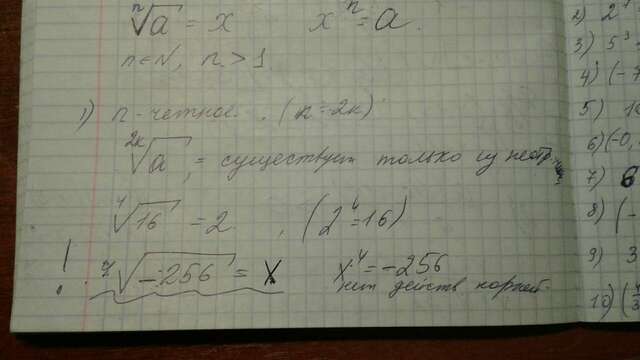 ⁿ√a = x xⁿ = a.
n∈N, n > 1
1) n - четное. (n = 2k)
²ᵏ√a, = существует только из неотр.
⁴√16 = 2. , (2⁴ = 16)
! ⁴√-256 = x x⁴ = -256
нет действ корней.
2) 2
3) 5³
4) (-7
5) 10
6) (-0,
7) 6
8) (-
9) 3
10) (